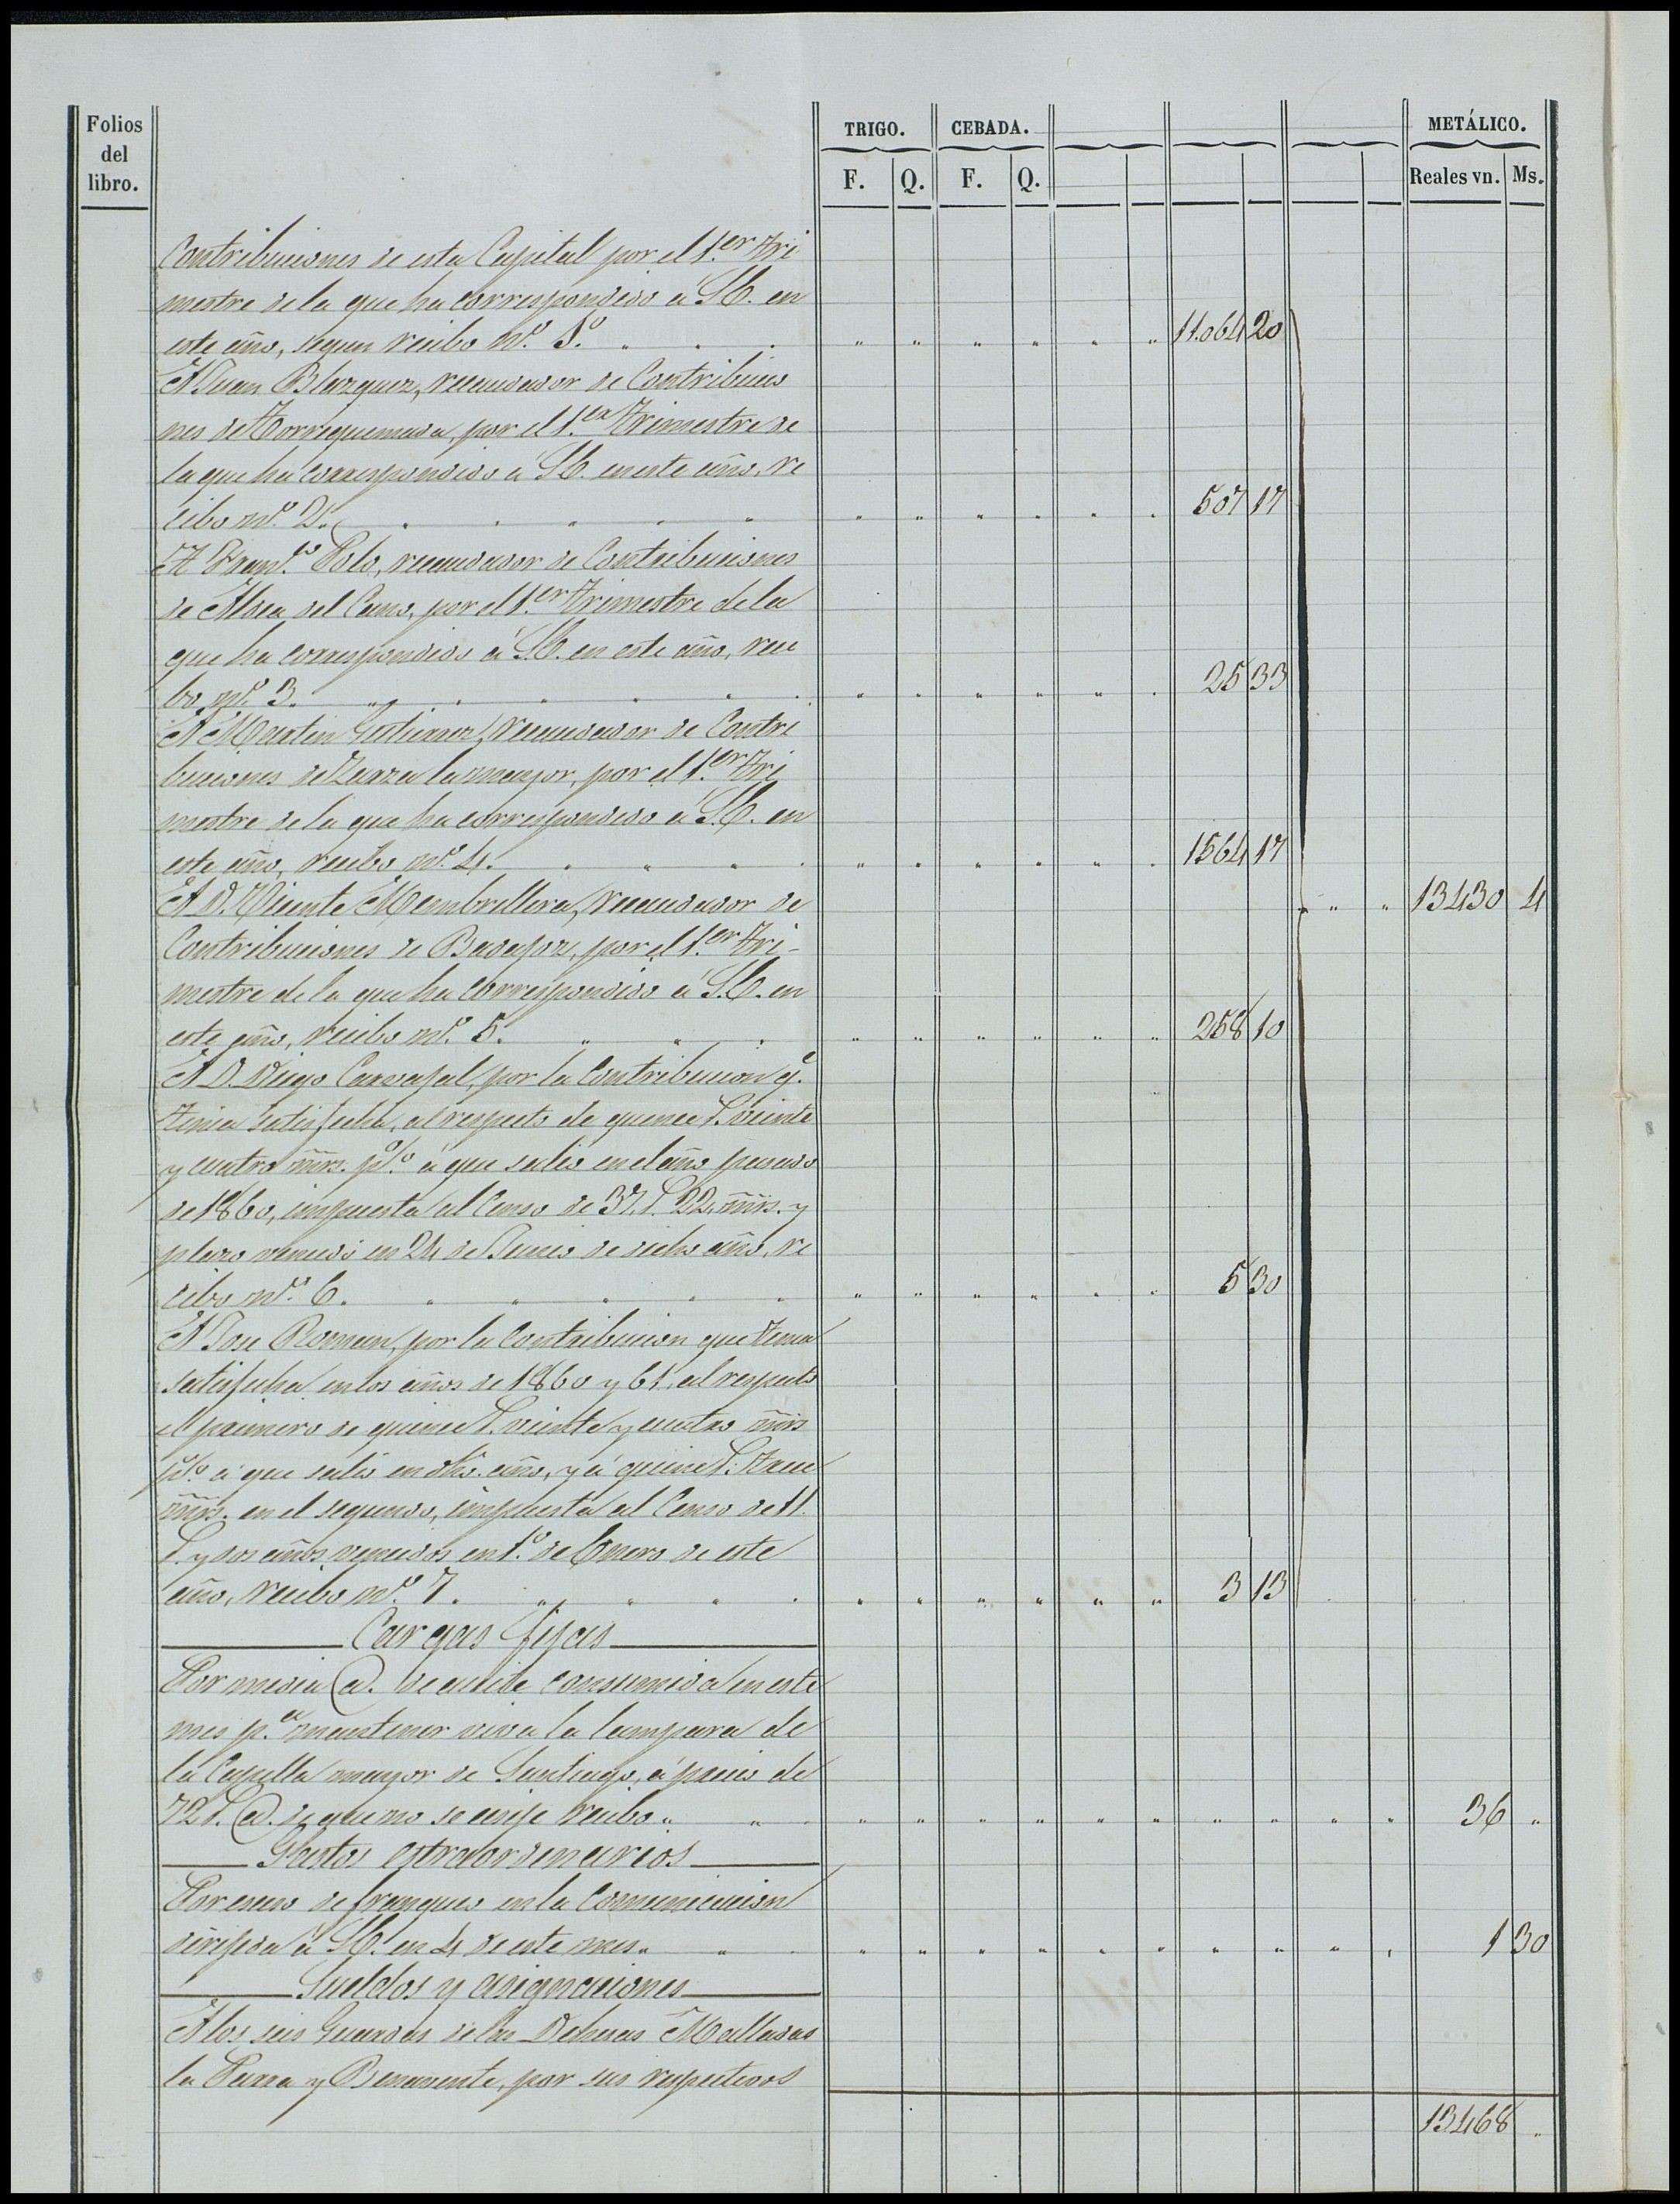 Folios del libro.
TRIGO. CEBADA. METÁLICO.
F. Q. F. Q. Reales vn. Ms.
Contribuciones de esta Capital por el 1.er tri
mestre de la que ha correspondido á S.E. en
este año, segun recibo n.º 1.º " " " " " " " " 11.064 20
A Juan Blazquez, recaudador de Contribucio
nes de Torrequemada, por el 1.er Trimestre de
la que ha correspondido á S.E. en este año, re
cibo n.º 2. " " " " " " 507 17
A Fran.co Polo, recaudador de Contribuciones
de Aldea del Cano, por el 1.er trimestre de la
que ha correspondido á S.E. en este año, reci
bo n.º 3. " " " " " " 25 33
A Martin Gutierrez, recaudador de Contri
buciones de Zarza la mayor, por el 1.er tri
mestre de la que ha correspondido á S.E. en
este año, recibo n.º 4. " " " " " " 1564 17
A D. Vicente Membrillera, recaudador de " " 13430 4
Contribuciones de Badajoz, por el 1.er tri-
mestre de la que ha correspondido á S.E. en
este año, recibo n.º 5. " " " " " " 258 10
A D. Diego Carvajal, por la Contribucion q.e
tenia satisfecha, al respecto de quince r. veinte
y cuatro mrs. p% á que salio en el año pasado
de 1860, impuesta al Censo de 37 r. 22 mrs. y
plazo vencido en 24 de Junio de dicho año, re
cibo n.º 6. " " " " " " 5 30
A Jose Roman, por la Contribucion que tenia
satisfecha en los años de 1860 y 61, al respecto
el primero de quince r. veinte y cuatro mrs
p% á que salió en dho. año, y á quince r. trece
mrs. en el segundo, impuesta al Censo de 11.
r. y dos años vencidos en 1.º de Enero de este
año, recibo n.º 7. " " " " " " 3 13
Cargas fijas
Por media @. de aceite consumida en este
mes p.a mantener viva la lampara de
la Capilla mayor de Santiago, á precio de
72 r. @. de que no se exije recibo " " " " " " " " " " 36 "
Gastos estraordinarios
Por esceso de franqueo en la Comunicacion
dirijida á S.E. en 4 de este mes " " " " " " " " " " 1 30
Sueldos y asignaciones
A los seis Guardas de las Dehesas Malladas
la Parra y Benavente, por sus respectivos
13468 "